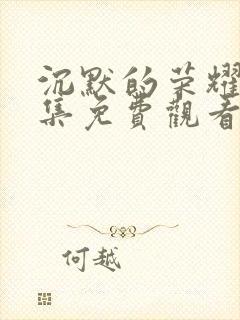 沉默的荣耀
集免費觀看
何越